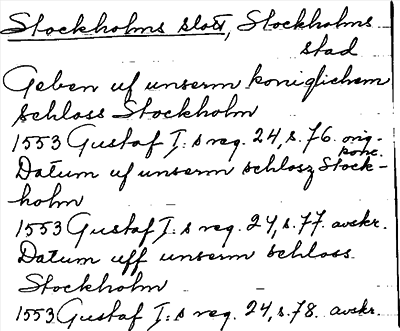 Stockholms slott, Stockholms
stad
Geben uf unserm koniglichem
schloss Stockholm
1553 Gustaf I:s reg. 24, s. 76. orig.
konc.
Datum uf unserm schlosz Stock-
holm
1553 Gustaf I:s reg. 24, s. 77. avskr.
Datum uff unserm schloss
Stockholm
1553 Gustaf I:s reg. 24, s. 78. avskr.